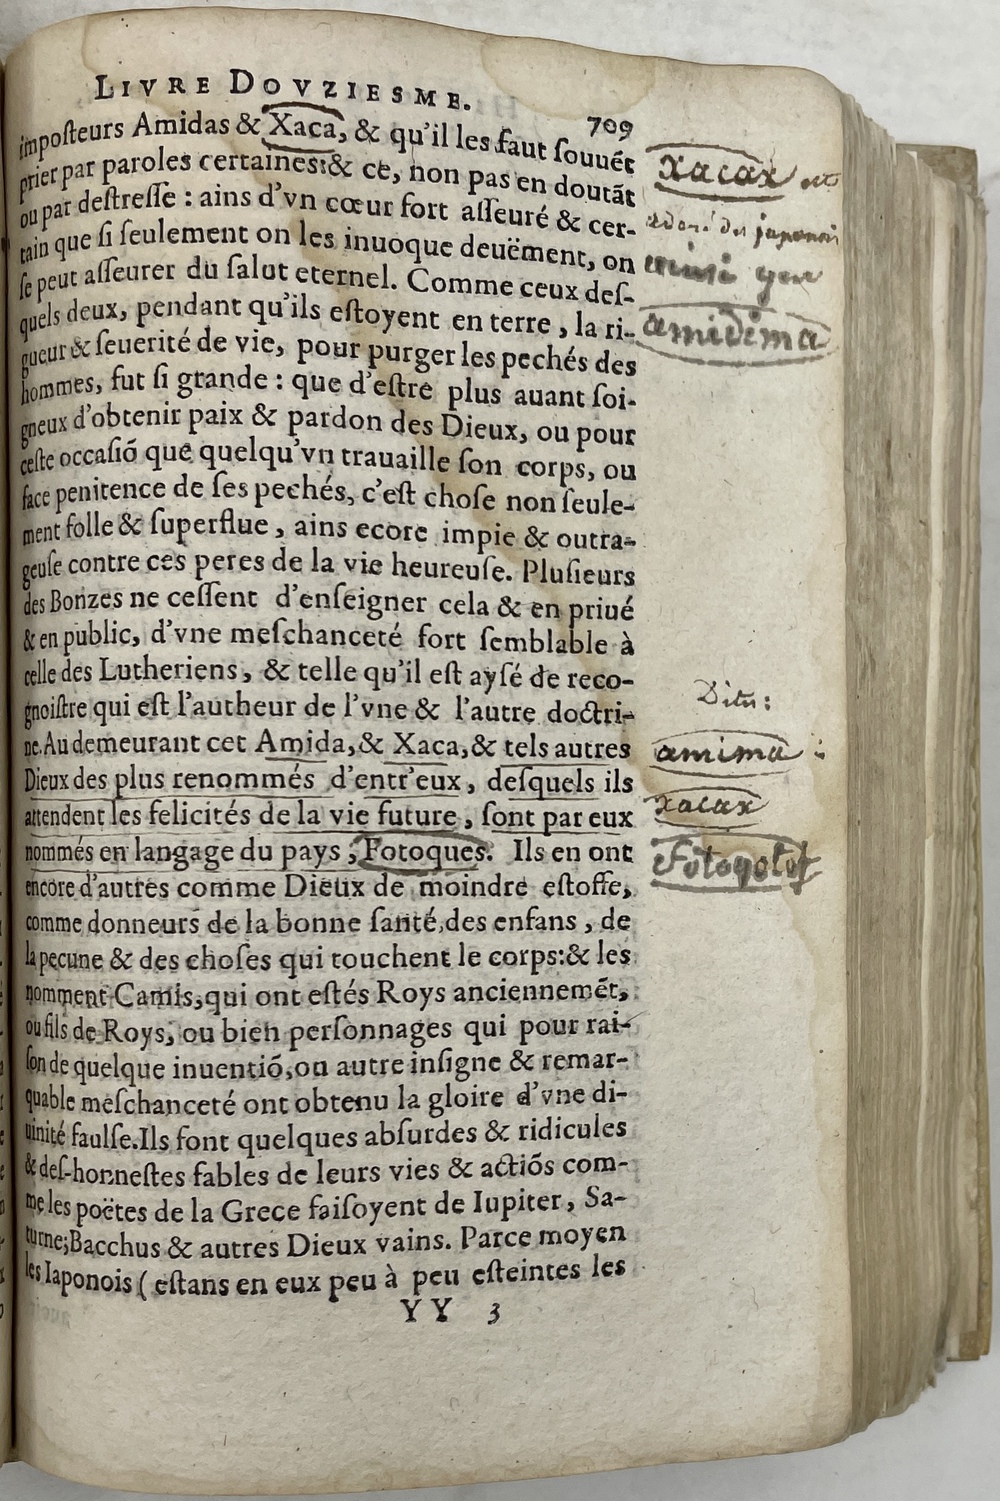 LIVRE DOVZIESME.
709
imposteurs Amidas & Xaca, & qu'il les faut souuẽt
prier par paroles certaines:& ce, non pas en doutãt
ou par destresse : ains d'vn cœur fort asseuré & cer-
tain que si seulement on les inuoque deuëment, on
se peut asseurer du salut eternel. Comme ceux des-
quels deux, pendant qu'ils estoyent en terre, la ri-
gueur & seuerité de vie, pour purger les pechés des
hommes, fut si grande : que d'estre plus auant soi-
gneux d'obtenir paix & pardon des Dieux, ou pour
ceste occasiõ que quelqu'vn trauaille son corps, ou
face penitence de ses pechés, c'est chose non seule-
ment folle & superflue, ains ecore impie & outra-
geuse contre ces peres de la vie heureuse. Plusieurs
des Bonzes ne cessent d'enseigner cela & en priué
& en public, d'vne meschanceté fort semblable à
celle des Lutheriens, & telle qu'il est aysé de reco-
gnoistre qui est l'autheur de l'vne & l'autre doctri-
ne. Au demeurant cet Amida,& Xaca,& tels autres
Dieux des plus renommés d'entr'eux, desquels ils
attendent les felicités de la vie future, sont par eux
nommés en langage du pays, Fotoques. Ils en ont
encore d'autres comme Dieux de moindre estoffe,
comme donneurs de la bonne santé,des enfans, de
la pecune & des choses qui touchent le corps:& les
nomment Camis,qui ont estés Roys anciennemẽt,
ou fils de Roys, ou bien personnages qui pour rai-
son de quelque inuentiõ,ou autre insigne & remar-
quable meschanceté ont obtenu la gloire d'vne di-
uinité faulse.Ils font quelques absurdes & ridicules
& des-honnestes fables de leurs vies & actiõs com-
me les poëtes de la Grece faisoyent de Iupiter, Sa-
turne,Bacchus & autres Dieux vains. Parce moyen
les Iaponois ( estans en eux peu à peu esteintes les
YY 3
xacax
adoré des japonois
ainsi que
amidima
Ditu:
amima
xacax